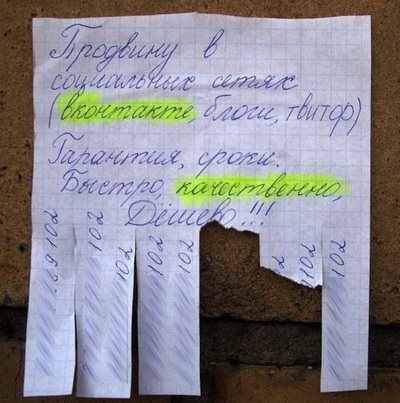 Продвину в
социальных сетях
(вконтакте, блоги, твитор)
Гарантия, сроки.
Быстро, качественно,
Дёшево!!!
69 102
102
102
102
102
2
102
102